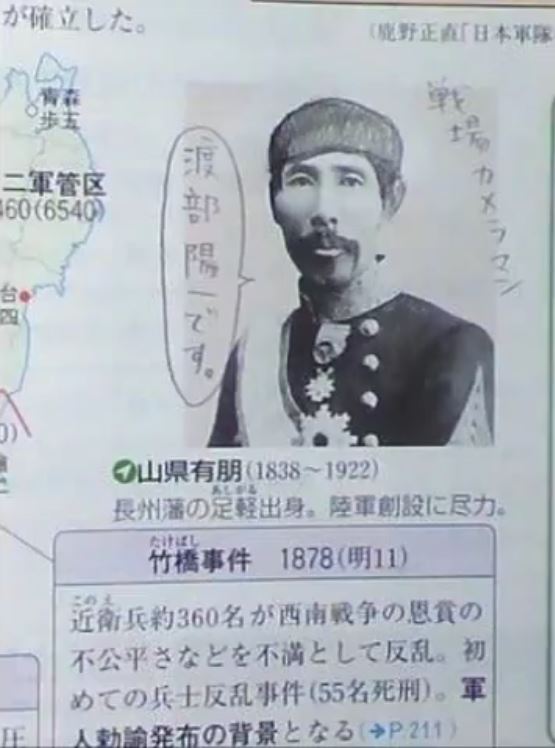 が確立した。
(鹿野正直『日本軍隊
青森
歩五
二軍管区
460(6540)
台
四
戦場カメラマン
渡部陽一です。
山県有朋(1838〜1922)
長州藩の足軽出身。陸軍創設に尽力。
あしがる
たけばし
竹橋事件 1878(明11)
このえ
近衛兵約360名が西南戦争の恩賞の
不公平さなどを不満として反乱。初
めての兵士反乱事件(55名死刑)。軍
人勅諭発布の背景となる(➔P.211)
圧